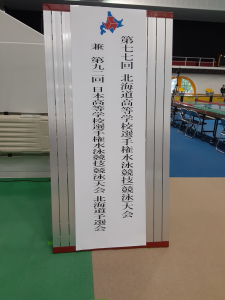 第七七回 北海道高等学校選手権水泳競技競泳大会
兼 第九二回 日本高等学校選手権水泳競技競泳大会 北海道予選会